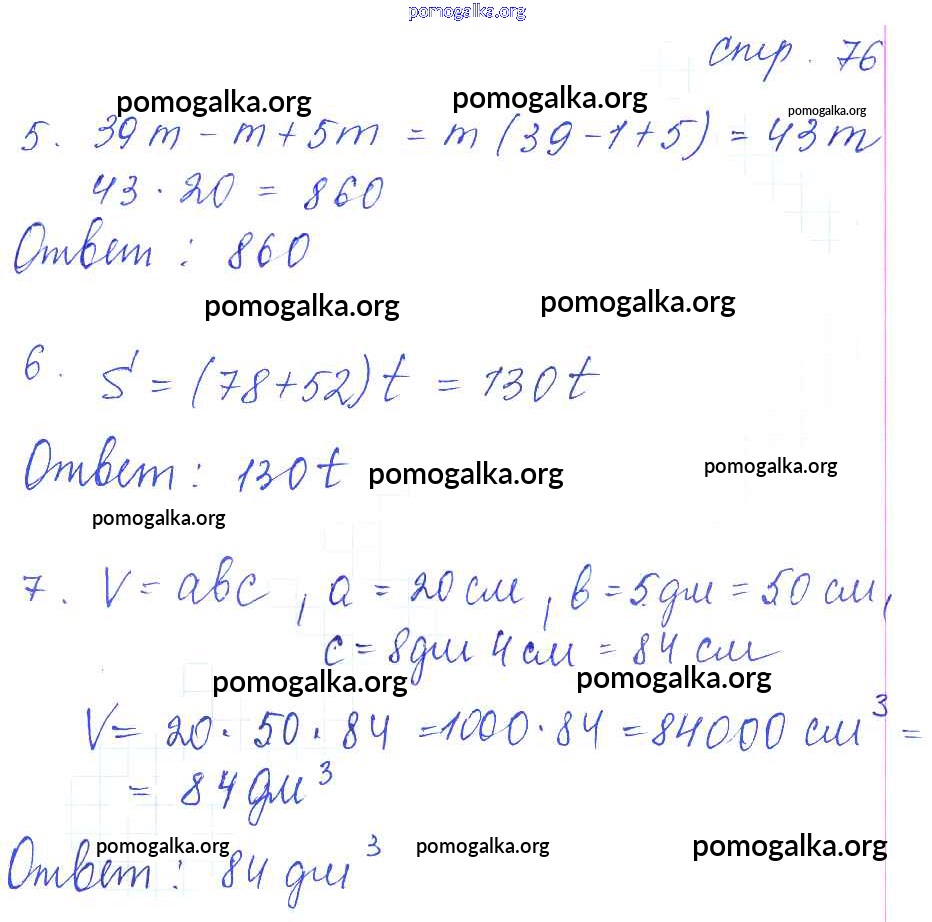 pomogalka.org
стр. 76
pomogalka.org pomogalka.org pomogalka.org
5. 39m - m + 5m = m(39-1+5) = 43m
43 · 20 = 860
Ответ: 860
pomogalka.org pomogalka.org
6. S = (78+52)t = 130t
Ответ: 130t
pomogalka.org pomogalka.org
pomogalka.org
7. V = abc, a = 20 см, b = 5 дм = 50 см,
c = 8 дм 4 см = 84 см
pomogalka.org pomogalka.org
V = 20 · 50 · 84 = 1000 · 84 = 84000 см³ =
= 84 дм³
pomogalka.org pomogalka.org pomogalka.org
Ответ: 84 дм³